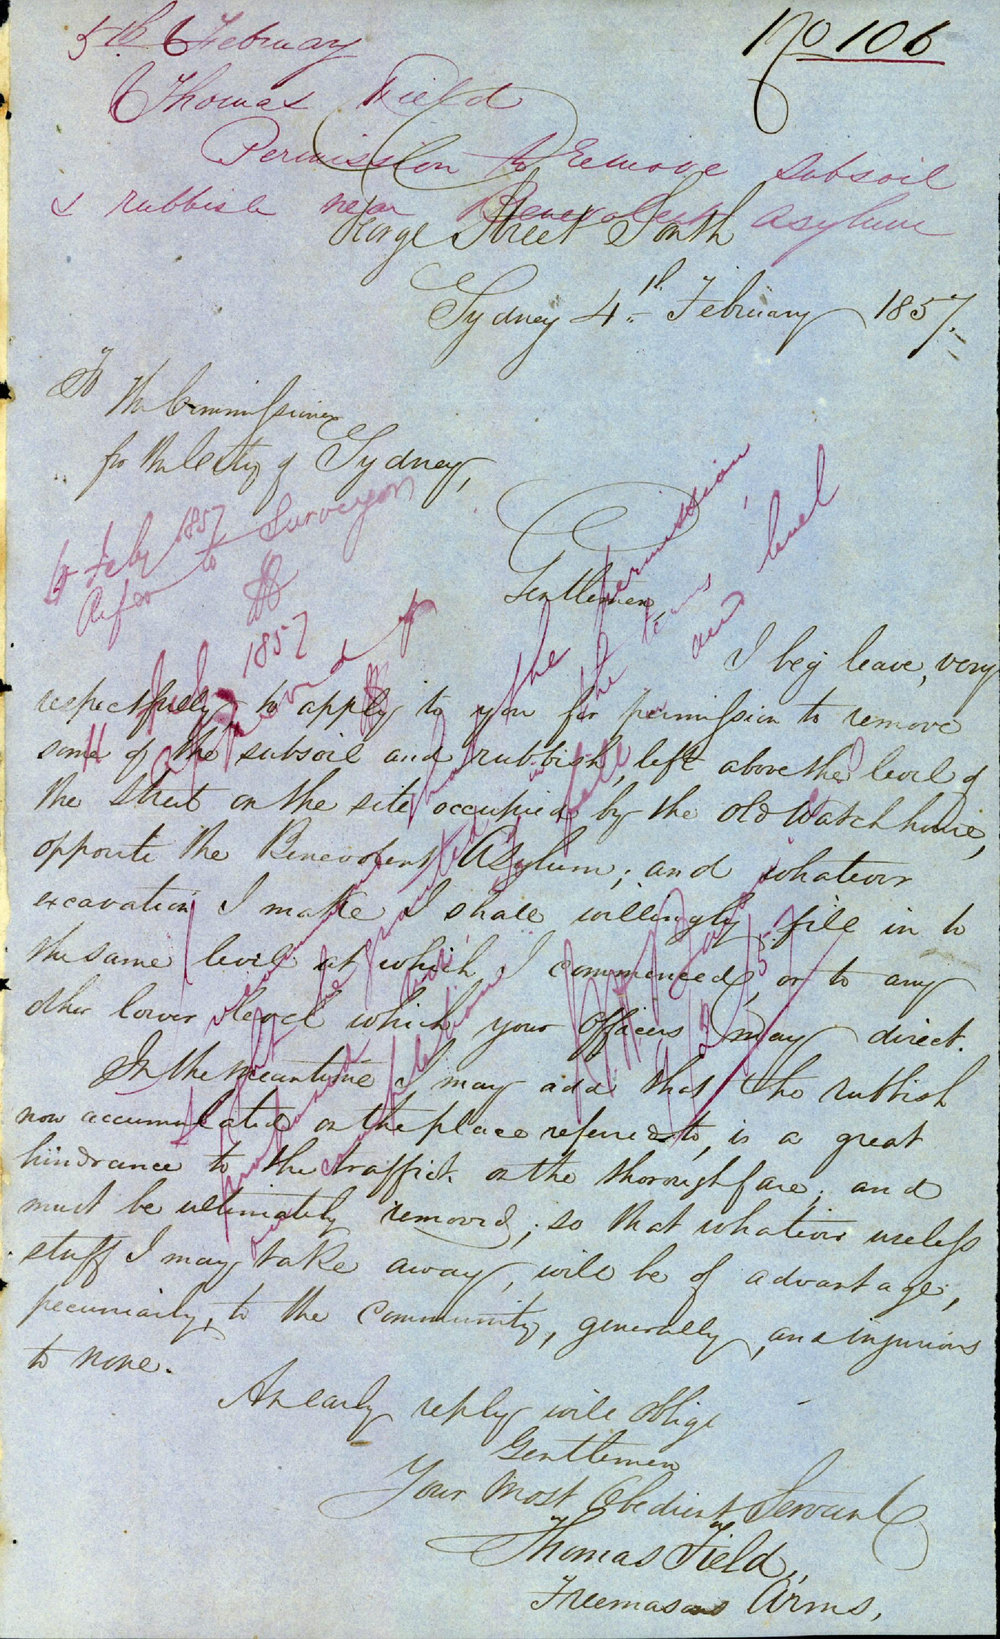 No 106
5th February
Thomas Field
Permission to Remove subsoil
& rubbish near Benevolent Asylum
George Street South
Sydney 4th February 1857.
To
The Commissioners
for the City of Sydney,
6 Feby 1857
Refer to Surveyor
Gentlemen,
1857
approved of
I beg leave, very
respectfully, to apply to you for permission to remove
some of the subsoil and rubbish, left above the level of
the Street on the site occupied by the old Watch house,
opposite the Benevolent Asylum; and whatever
excavation I make I shall willingly fill in to
the same level at which I commenced, or to any
other lower level which your Officers may direct.
In the meantime I may add that the rubbish
now accumulated on the place referred to, is a great
hindrance to the traffick on the thoroughfare; and
must be ultimately removed; so that whatever useless
stuff I may take away, will be of advantage,
pecuniarily, to the Community, generally, and injurious
to none.
An early reply will oblige
Gentlemen
Your Most Obedient Servant
Thomas Field,
Freemasons Arms.
I recommend the permission
be granted